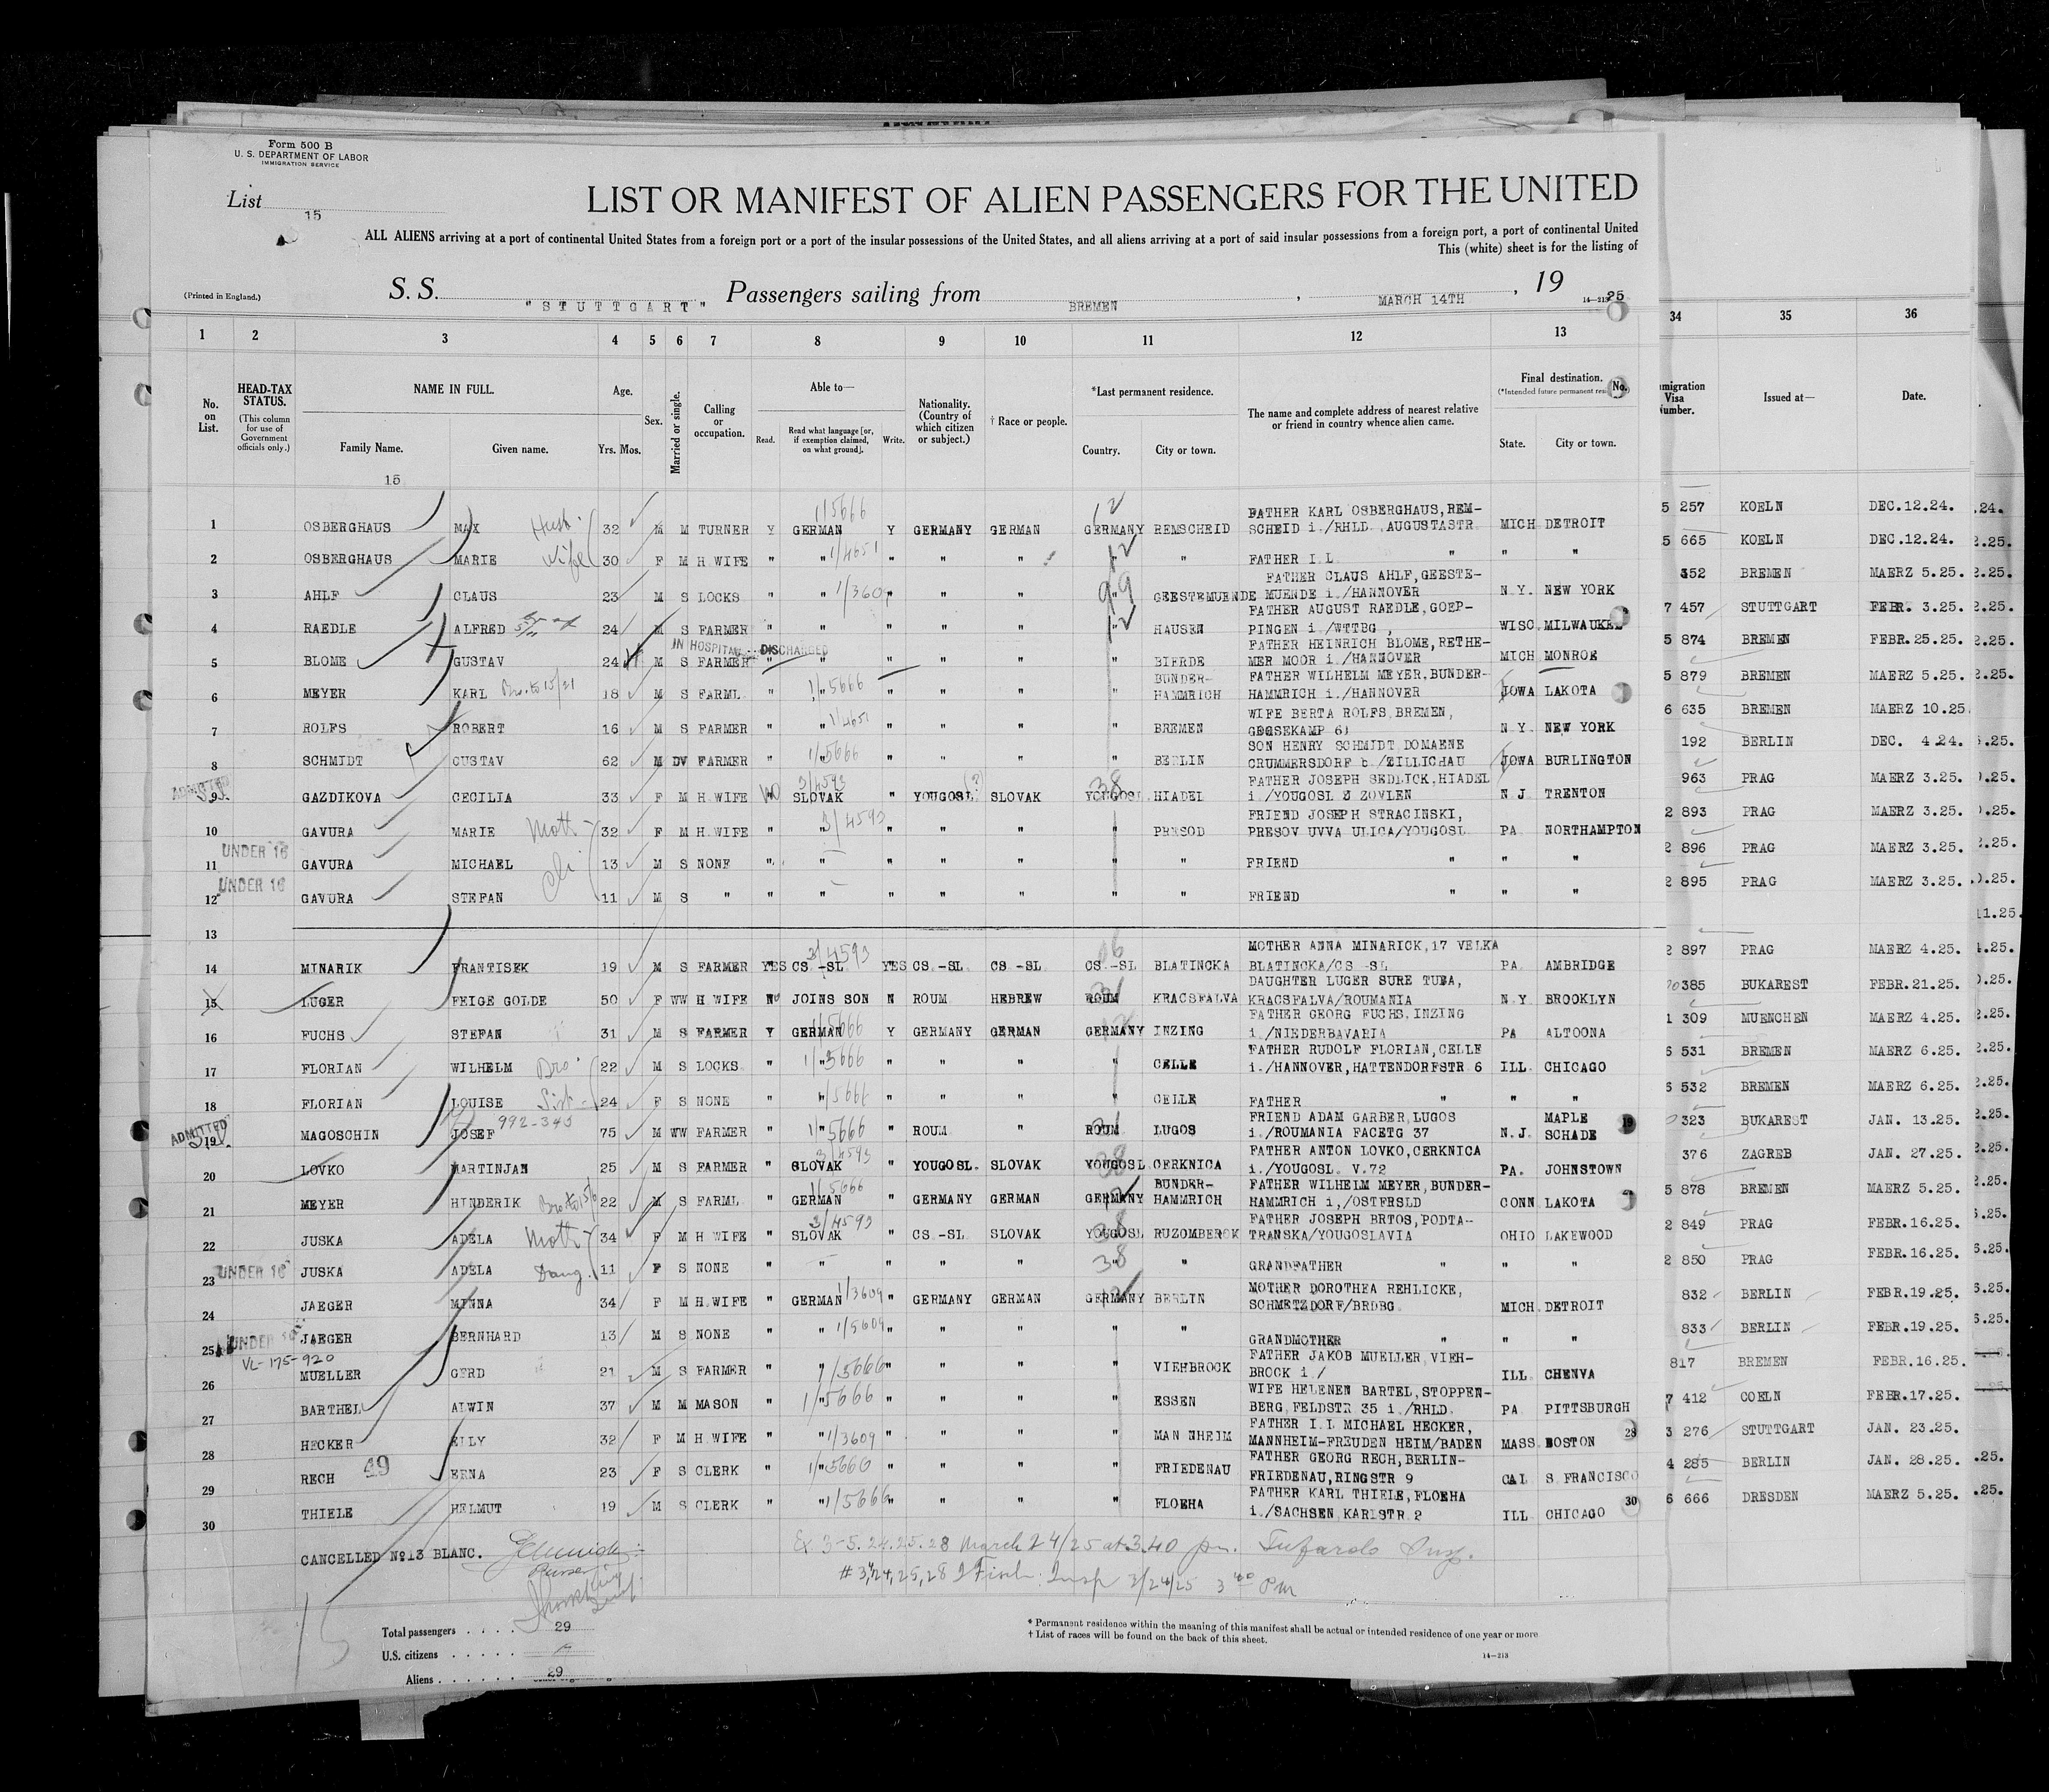 Form 500 B
U. S. DEPARTMENT OF LABOR
IMMIGRATION SERVICE
List 15
LIST OR MANIFEST OF ALIEN PASSENGERS FOR THE UNITED
ALL ALIENS arriving at a port of continental United States from a foreign port or a port of the insular possessions of the United States, and all aliens arriving at a port of said insular possessions from a foreign port, a port of continental United
This (white) sheet is for the listing of
(Printed in England.)
S. S. "STUTTGART" Passengers sailing from BREMEN, MARCH 14TH, 1925
14—213
1 2 3 4 5 6 7 8 9 10 11 12 13 34 35 36
No. on List.
HEAD-TAX STATUS.
(This column for use of Government officials only.)
NAME IN FULL.
Family Name. Given name.
15
Age.
Yrs. Mos.
Sex.
Married or single.
Calling or occupation.
Able to—
Read. Read what language [or, if exemption claimed, on what ground]. Write.
Nationality. (Country of which citizen or subject.)
† Race or people.
*Last permanent residence.
Country. City or town.
The name and complete address of nearest relative or friend in country whence alien came.
Final destination.
(*Intended future permanent
No.
State. City or town.
Visa
Issued at—
Date.
1 OSBERGHAUS MAX Husb 32 M M TURNER Y GERMAN 1/5666 Y GERMANY GERMAN GERMANY REMSCHEID FATHER KARL OSBERGHAUS, REM-SCHEID i./RHLD. AUGUSTASTR MICH DETROIT 5 257 KOELN DEC.12.24.
2 OSBERGHAUS MARIE Wife 30 F M H.WIFE " " 1/4651 " " " " " FATHER I.L. " " " 5 665 KOELN DEC.12.24.
3 AHLF CLAUS 23 M S LOCKS. " " 1/3609 " " " 99 GEESTEMUENDE FATHER CLAUS AHLF, GEESTE-MUENDE i./HANNOVER N.Y. NEW YORK 352 BREMEN MAERZ 5.25.
4 RAEDLE ALFRED 24 M S FARMER " " " " " HAUSEN FATHER AUGUST RAEDLE, GOEP-PINGEN i./WTTBG, WISC. MILWAUKEE 7 457 STUTTGART FEBR. 3.25.
IN HOSPITAL DISCHARGED
5 BLOME GUSTAV 24 M S FARMER " " " " " " BIERDE FATHER HEINRICH BLOME, RETHE-MER MOOR i./HANNOVER MICH MONROE 5 874 BREMEN FEBR.25.25.
6 MEYER KARL Bro. to 15/21 18 M S FARML. " 1/5666 " " " " BUNDER-HAMMRICH FATHER WILHELM MEYER, BUNDER-HAMMRICH i./HANNOVER IOWA LAKOTA 5 879 BREMEN MAERZ 5.25.
7 ROLFS ROBERT 16 M S FARMER " " 1/4651 " " " " BREMEN WIFE BERTA ROLFS, BREMEN, N.Y. NEW YORK 6 635 BREMEN MAERZ 10.25
8 SCHMIDT GUSTAV 62 M DV FARMER " 1/5666 " " " " BERLIN SON HENRY SCHMIDT DOMAENE CRUMMERSDORF b./ZILLICHAU IOWA BURLINGTON 192 BERLIN DEC. 4.24.
ADMITTED
9 GAZDIKOVA CECILIA 33 F M H.WIFE NO 3/4593 SLOVAK " YOUGOSL (?) SLOVAK 38 YOUGOSL HIADEL FATHER JOSEPH SEDLICK, HIADEL i./YOUGOSL Z ZOVLEN N.J. TRENTON 963 PRAG MAERZ 3.25.
10 GAVURA MARIE Moth 32 F M H.WIFE " 3/4593 " " " " PRESOD FRIEND JOSEPH STRACINSKI, PRESOV UVVA ULICA/YOUGOSL PA NORTHAMPTON 2 893 PRAG MAERZ 3.25.
UNDER 16
11 GAVURA MICHAEL 13 M S NONE " " " " " " " FRIEND " " " 2 896 PRAG MAERZ 3.25.
UNDER 16
12 GAVURA STEFAN 11 M S " " " " " " " " FRIEND " " " 2 895 PRAG MAERZ 3.25.
13
14 MINARIK FRANTISEK 19 M S FARMER YES CS.-SL 3/4593 YES CS.-SL CS.-SL CS.-SL BLATINCKA MOTHER ANNA MINARICK, 17 VELKA BLATINCKA/CS-SL PA. AMBRIDGE 2 897 PRAG MAERZ 4.25.
15 LUGER FEIGE GOLDE 50 F WW H.WIFE No JOINS SON N ROUM HEBREW ROUM KRACSFALVA DAUGHTER LUGER SURE TUBA, KRACSFALVA/ROUMANIA N.Y BROOKLYN 385 BUKAREST FEBR.21.25.
16 FUCHS STEFAN 31 M S FARMER Y GERMAN 1/5666 Y GERMANY GERMAN GERMANY INZING FATHER GEORG FUCHS, INZING i./NIEDERBAVARIA PA ALTOONA 1 309 MUENCHEN MAERZ 4.25.
17 FLORIAN WILHELM Bro 22 M S LOCKS. " 1/5666 " " " " CELLE FATHER RUDOLF FLORIAN, CELLE i./HANNOVER, HATTENDORFSTR 6 ILL. CHICAGO 6 531 BREMEN MAERZ 6.25.
18 FLORIAN LOUISE Sist 24 F S NONE " 1/5666 " " " " CELLE FATHER " " " 6 532 BREMEN MAERZ 6.25.
ADMITTED 992-345
19 MAGOSCHIN JOSEF 75 M WW FARMER " 1/5666 " ROUM " ROUM LUGOS FRIEND ADAM GARBER, LUGOS i./ROUMANIA FACETG 37 N.J. MAPLE SCHADE 19 323 BUKAREST JAN. 13.25.
20 LOVKO MARTINJAN 25 M S FARMER " SLOVAK 3/4593 " YOUGOSL. SLOVAK YOUGOSL CERKNICA FATHER ANTON LOVKO, CERKNICA i./YOUGOSL. V.72 PA. JOHNSTOWN 376 ZAGREB JAN. 27.25.
21 MEYER HINDERIK Bro to 15/6 22 M S FARML " GERMAN 1/5666 " GERMANY GERMAN GERMANY BUNDER-HAMMRICH FATHER WILHELM MEYER, BUNDER-HAMMRICH i,/OSTFRSLD CONN LAKOTA 5 878 BREMEN MAERZ 5.25.
22 JUSKA ADELA Moth 34 F M H.WIFE " SLOVAK 3/4593 " CS.-SL SLOVAK 38 YOUGOSL RUZOMBEROK FATHER JOSEPH BRTOS, PODTA-TRANSKA/YOUGOSLAVIA OHIO LAKEWOOD 2 849 PRAG FEBR.16.25.
UNDER 16
23 JUSKA ADELA Daug. 11 F S NONE " " " " " 38 " GRANDFATHER " " " 2 850 PRAG FEBR.16.25.
24 JAEGER MINNA 34 F M H.WIFE " GERMAN 1/3609 " GERMANY GERMAN GERMANY BERLIN MOTHER DOROTHEA REHLICKE, SCHMETZDORF/BRDBG. MICH DETROIT 832 BERLIN FEBR.19.25.
UNDER
25 JAEGER BERNHARD 13 M S NONE " " 1/5609 " " " " " GRANDMOTHER " " " 833 BERLIN FEBR.19.25.
VL-175-920
26 MUELLER GERD 21 M S FARMER " 1/5666 " " " " VIEHBROCK FATHER JAKOB MUELLER, VIEH-BROCK i./ ILL CHENVA 817 BREMEN FEBR.16.25.
27 BARTHEL ALWIN 37 M M MASON " 1/5666 " " " " ESSEN WIFE HELENEN BARTEL, STOPPEN-BERG, FELDSTR 35 i./RHLD. PA PITTSBURGH 7 412 COELN FEBR.17.25.
28 HECKER ELLY 32 F M H.WIFE " " 1/3609 " " " " MANNHEIM FATHER I.L MICHAEL HECKER, MANNHEIM-FREUDEN HEIM/BADEN MASS. BOSTON 28 3 276 STUTTGART JAN. 23.25.
29 RECH 49 ERNA 23 F S CLERK " 1/5660 " " " " FRIEDENAU FATHER GEORG RECH, BERLIN-FRIEDENAU, RINGSTR 9 CAL S. FRANCISCO 4 285 BERLIN JAN. 28.25.
30 THIELE HELMUT 19 M S CLERK " " 1/5666 " " " " FLOEHA FATHER KARL THIELE, FLOEHA i./SACHSEN KARLSTR 2 ILL CHICAGO 30 6 666 DRESDEN MAERZ 5.25.
CANCELLED No13 BLANC.
Ex 3-5.24.25.28 March 24/25 at 3.40 pm. Insp.
# 3, 4, 24, 25, 28 Insp 3/24/25 3 40 PM
15
Total passengers . . . . 29
U.S. citizens . . . . . .
Aliens . . . . . . . 29
* Permanent residence within the meaning of this manifest shall be actual or intended residence of one year or more
† List of races will be found on the back of this sheet.
14—213